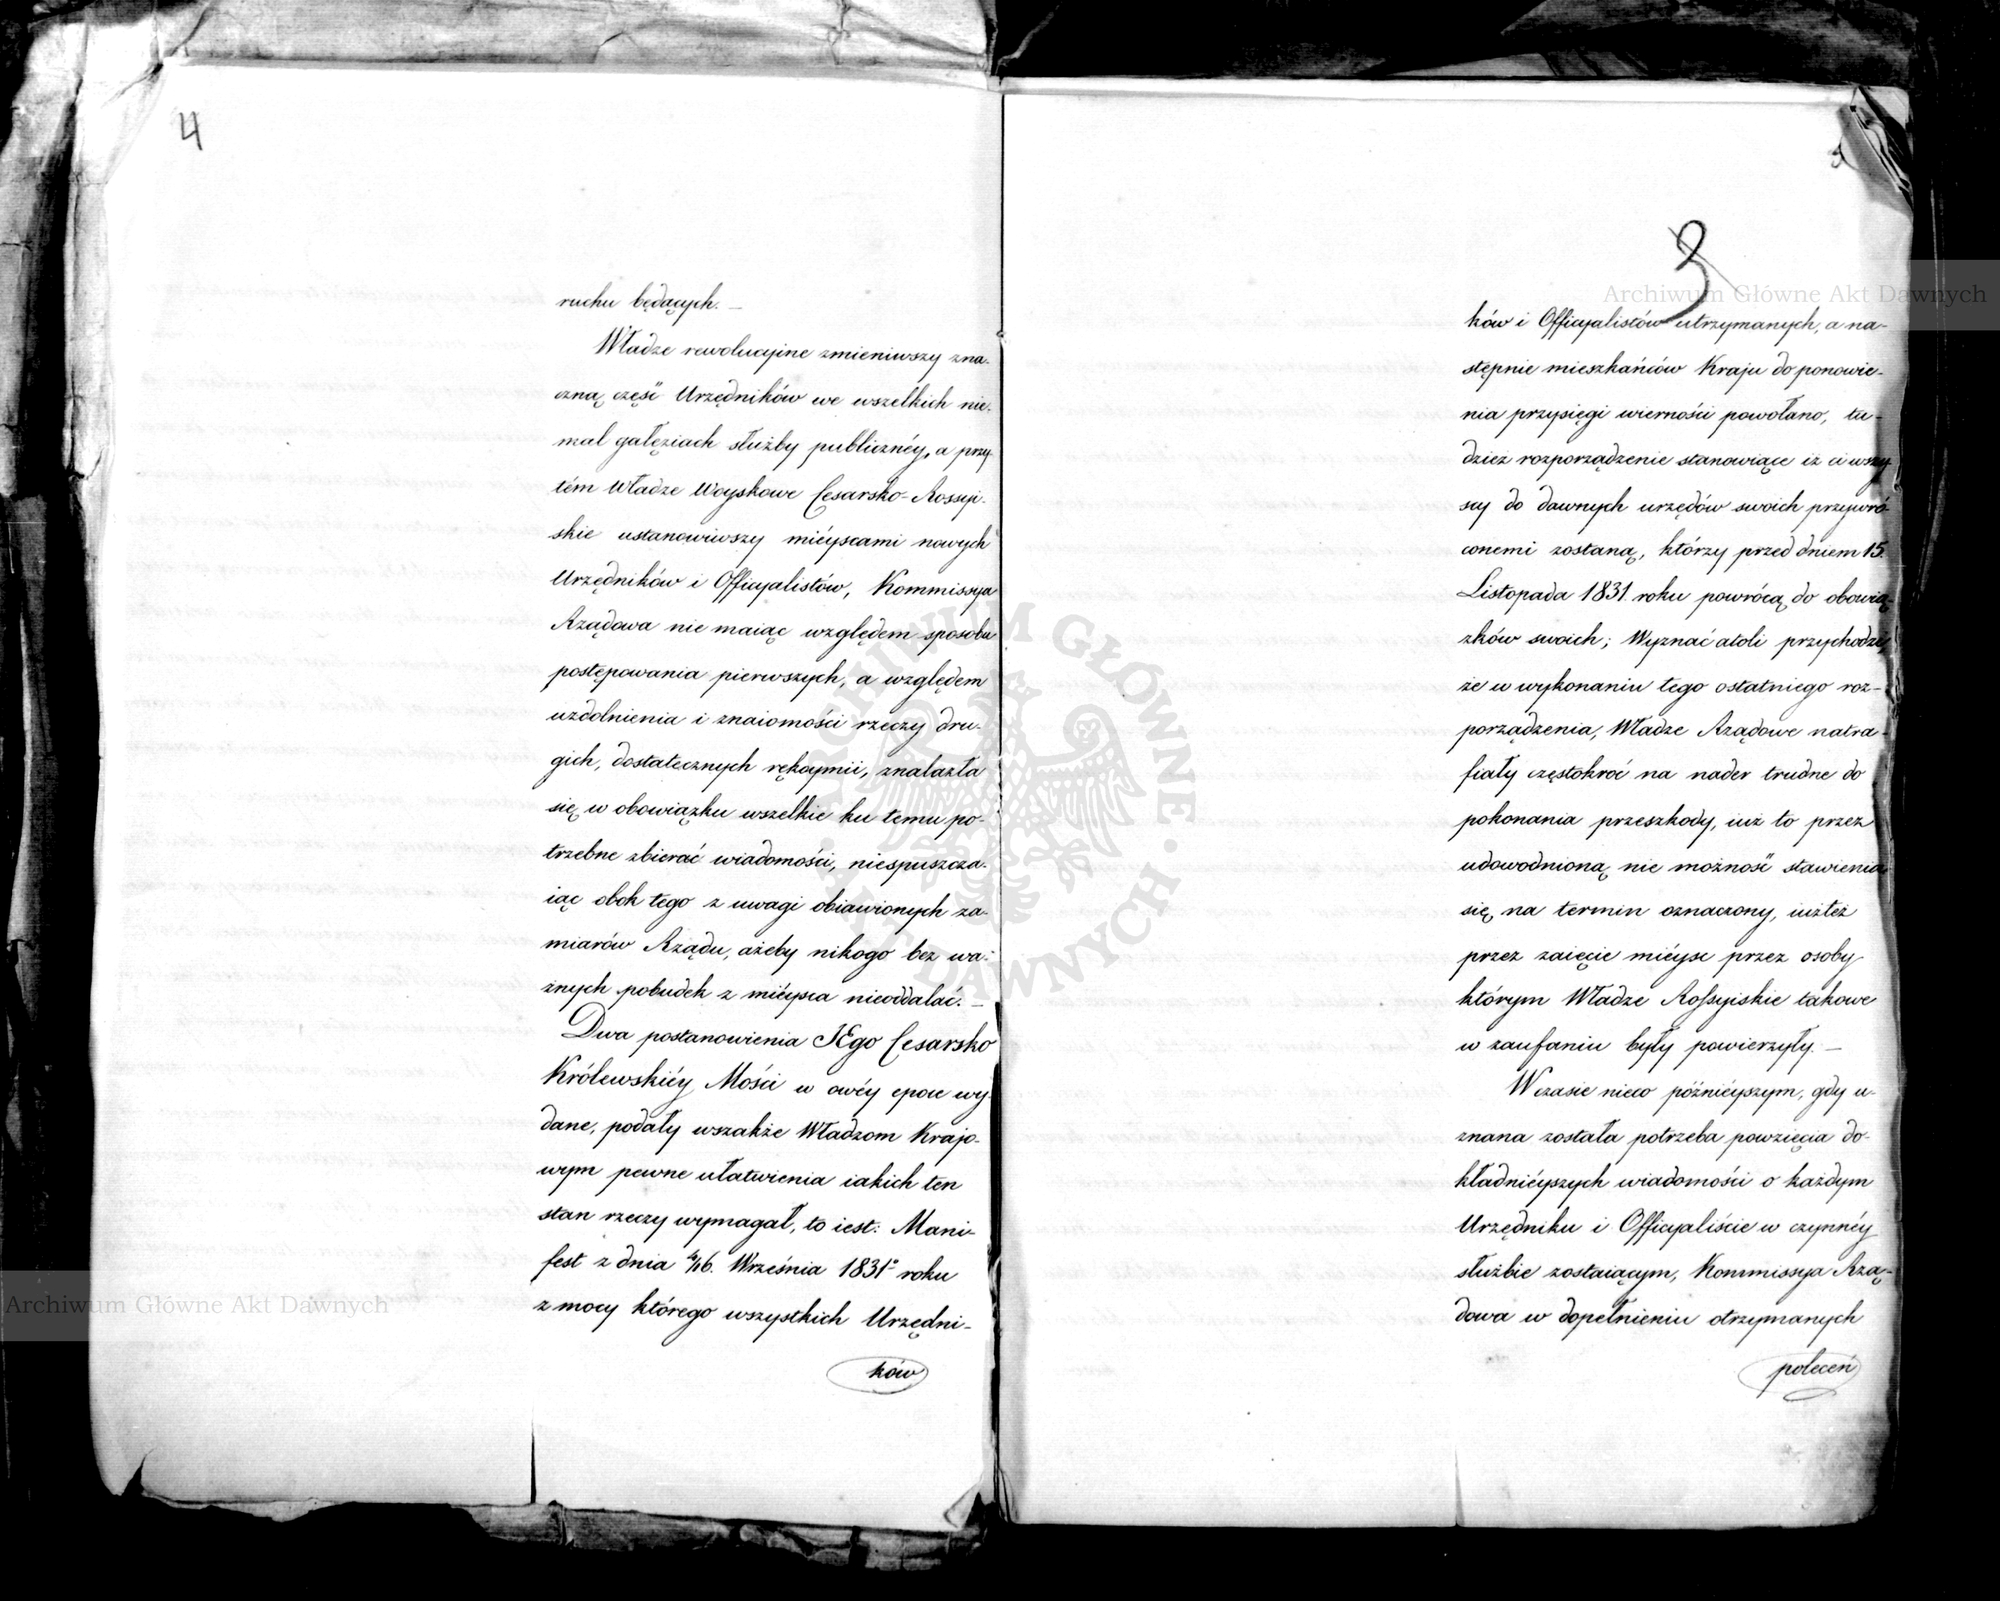 4
ruchu będących. —
Władze rewolucyine zmieniwszy zna-
czną część Urzędników we wszelkich nie-
mal gałęziach służby publicznéy, a przy
tém Władze Woyskowe Cesarsko-Rossyi-
skie ustanowiwszy mieyscami nowych
Urzędników i Officyalistów, Kommissya
Rządowa nie maiąc względem sposobu
postępowania pierwszych, a względem
uzdolnienia i znaiomości rzeczy dru-
gich, dostatecznych rękoymii, znalazła
się w obowiązku wszelkie ku temu po-
trzebne zbierać wiadomości, niespuszcza-
iąc obok tego z uwagi obiawionych za-
miarów Rządu, ażeby nikogo bez wa-
żnych pobudek z mieysca nieoddalać. —
Dwa postanowienia JEgo Cesarsko
Królewskiéy Mości w owéy epoce wy-
dane, podały wszakże Władzom Krajo-
wym pewne ułatwienia iakich ten
stan rzeczy wymagał, to iest: Mani-
fest z dnia 4/16. Września 1831º roku
z mocy którego wszystkich Urzędni-
ków
3
3
ków i Officyalistów utrzymanych, a na-
stępnie mieszkańców Kraju do ponowie-
nia przysięgi wierności powołano, tu-
dzież rozporządzenie stanowiące iż ci wszy-
scy do dawnych urzędów swoich przywró-
conemi zostaną, którzy przed dniem 15.
Listopada 1831. roku powrócą do obowią-
zków swoich; Wyznać atoli przychodzi,
że w wykonaniu tego ostatniego roz-
porządzenia, Władze Rządowe natra-
fiały częstokroć na nader trudne do
pokonania przeszkody, iuż to przez
udowodnioną nie możność stawienia
się na termin oznaczony, iużteż
przez zaięcie mieysc przez osoby
którym Władze Rossyiskie takowe
w zaufaniu były powierzyły. —
W czasie nieco późnieyszym, gdy u-
znana została potrzeba powzięcia do-
kładnieyszych wiadomości o każdym
Urzędniku i Officyaliście w czynnéy
służbie zostaiącym, Kommissya Rzą-
dowa w dopełnieniu otrzymanych
poleceń
Archiwum Główne Akt Dawnych
Archiwum Główne Akt Dawnych
ARCHIWUM GŁÓWNE · AKT DAWNYCH ·